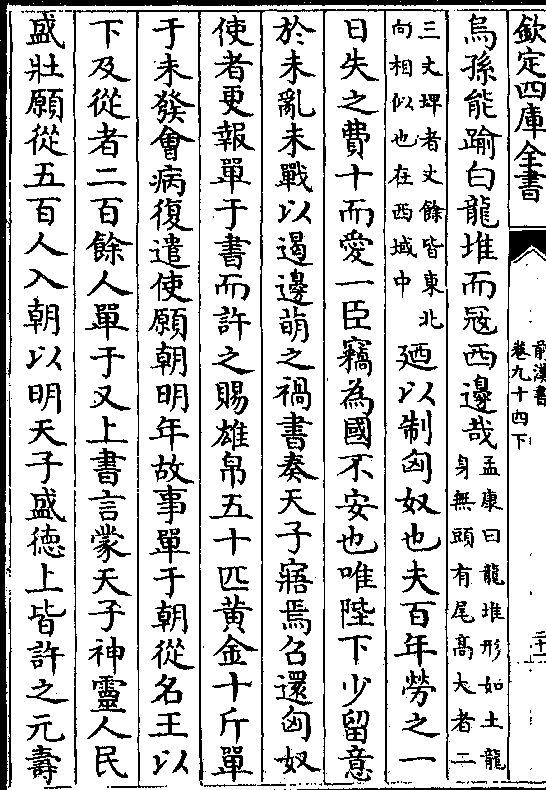 欽定四庫全書
前漢書
卷九十四下
二十
烏孫能踰白龍堆而冦西邊哉孟康曰龍堆形如土龍身無頭有尾髙大者二
三丈埤者丈餘皆東北向相似也在西域中廼以制匈奴也夫百年勞之一
日失之費十而愛一臣竊為國不安也唯陛下少留意
於未亂未戰以遏邊萌之禍書奏天子寤焉召還匈奴
使者更報單于書而許之賜雄帛五十匹黄金十斤單
于未發會病復遣使願朝明年故事單于朝從名王以
下及從者二百餘人單于又上書言蒙天子神靈人民
盛壯願從五百人入朝以明天子盛徳上皆許之元壽